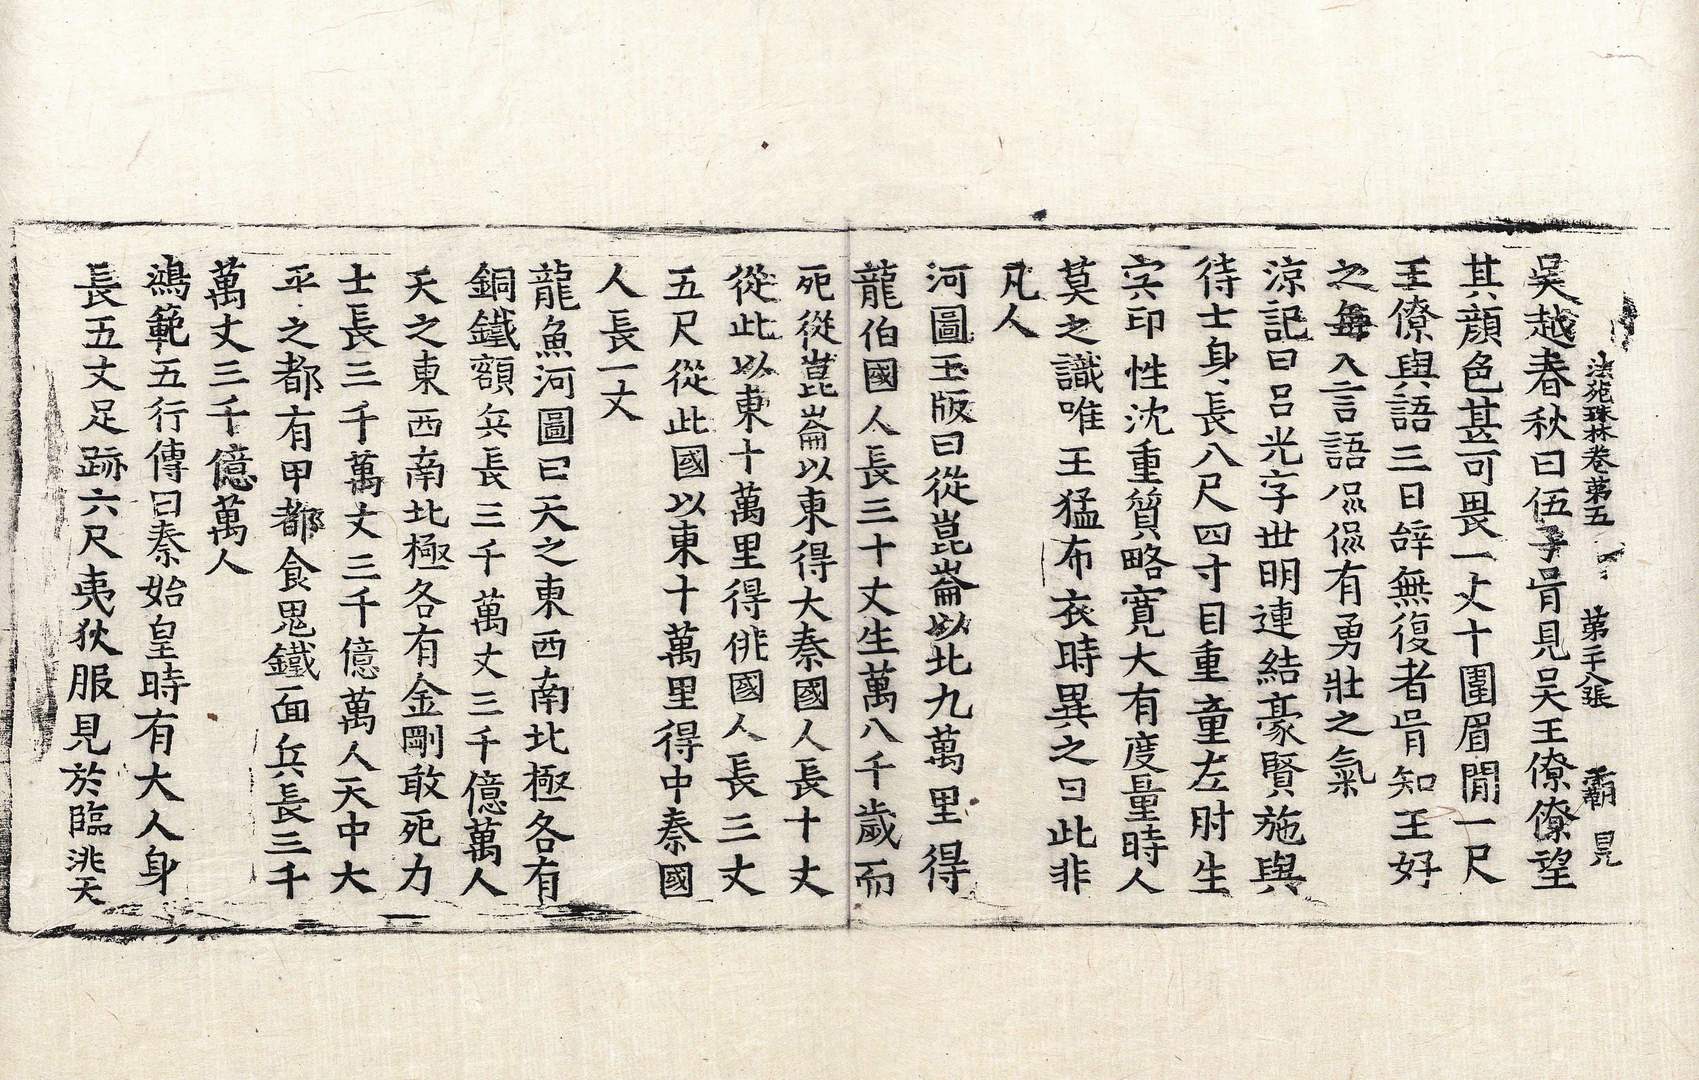 法苑珠林卷第五 第二十八張 覇 㫤
吳越春秋曰伍子胥見吳王僚僚望
其顔色甚可畏一丈十圍眉閒一尺
王僚與語三日辝無復者胥知王好
之每入言語侃侃有勇壯之氣
涼記曰呂光字世明連結豪賢施與
待士身長八尺四寸目重童左肘生
宍印性沈重質略寛大有度量時人
莫之識唯王猛布衣時異之曰此非
凡人
河圖玉版曰從崑崙以北九萬里得
龍伯國人長三十丈生萬八千歲而
死從崑崙以東得大秦國人長十丈
從此以東十萬里得佻國人長三丈
五尺從此國以東十萬里得中秦國
人長一丈
龍魚河圖曰天之東西南北極各有
銅鐵額兵長三千萬丈三千億萬人
天之東西南北極各有金剛敢死力
士長三千萬丈三千億萬人天中大
平之都有甲都食鬼鐵面兵長三千
萬丈三千億萬人
鴻範五行傳曰秦始皇時有大人身
長五丈足跡六尺夷狄服見於臨洮天